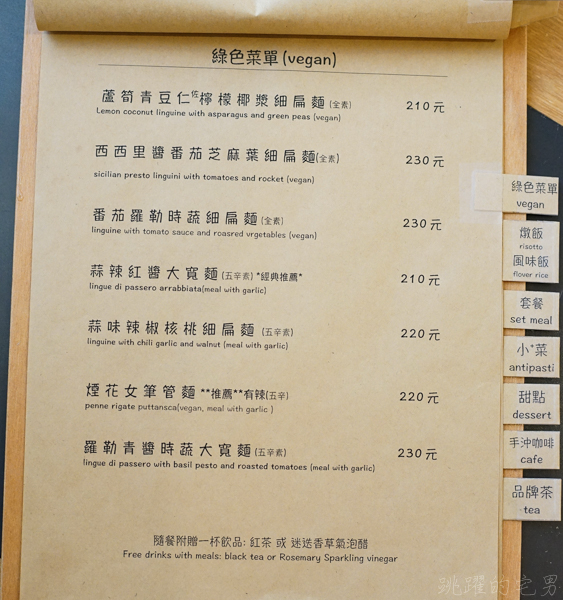 綠色菜單(vegan)
蘆筍青豆仁佐檸檬椰漿細扁麵(全素) 210元
Lemon coconut linguine with asparagus and green peas (vegan)
西西里醬番茄芝麻葉細扁麵(全素) 230元
sicilian presto linguini with tomatoes and rocket (vegan)
番茄羅勒時蔬細扁麵(全素) 230元
linguine with tomato sauce and roasred vrgetables (vegan)
蒜辣紅醬大寬麵(五辛素)*經典推薦* 210元
lingue di passero arrabbiata(meal with garlic)
蒜味辣椒核桃細扁麵(五辛素) 220元
linguine with chili garlic and walnut (meal with garlic)
煙花女筆管麵**推薦**有辣(五辛) 220元
penne rigate puttansca(vegan, meal with garlic )
羅勒青醬時蔬大寬麵(五辛素) 230元
lingue di passero with basil pesto and roasted tomatoes (meal with garlic)
隨餐附贈一杯飲品: 紅茶 或 迷迭香草氣泡醋
Free drinks with meals: black tea or Rosemary Sparkling vinegar
綠色菜單
vegan
燉飯
risotto
風味飯
flover rice
套餐
set meal
小菜
antipasti
甜點
dessert
手沖咖啡
cafe
品牌茶
tea
跳躍的宅男